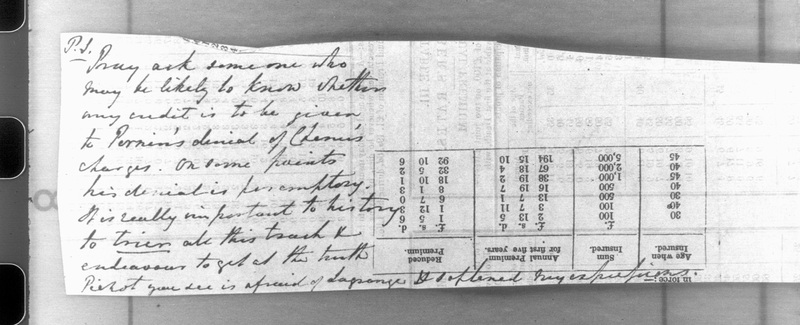 P.S.
Pray ask someone who
may be likely to know whether
any credit is to be given
to denial of
charges. On some points
his denial is peremptory.
It is really important to history
to all this trash &
endeavour to get at the truth
you see is afraid of Lagrange & softened my expressions.
in force:—
Age when Insured. Sum Insured. Annual Premium for first five years. Reduced Premium.
£. £. s. d. £. s. d.
30 100 2 13 5 1 5 6
40 100 3 7 11 1 12 3
30 500 13 7 1 6 7 0
40 500 16 19 7 8 1 3
45 1,000 38 19 2 18 10 1
40 2,000 67 18 4 32 5 2
45 5,000 194 15 10 92 10 6